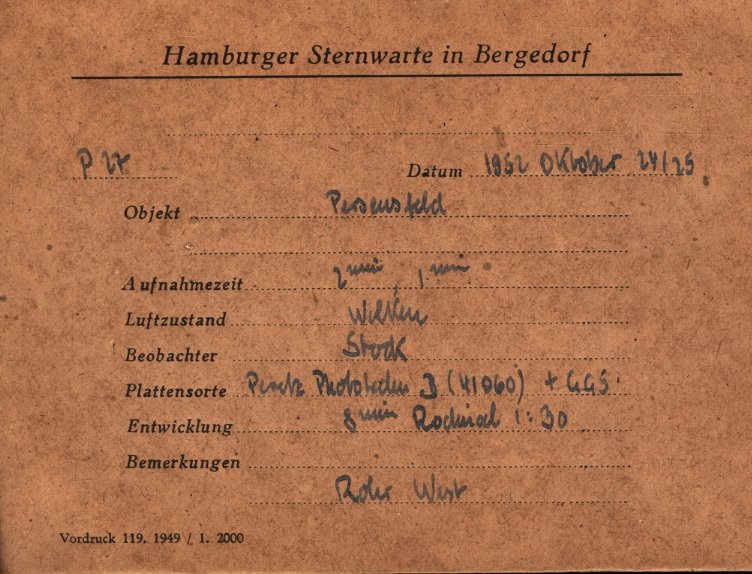 Hamburger Sternwarte in Bergedorf
P 27 Datum 1952 Oktober 24/25
Objekt Perseusfeld
Aufnahmezeit 2 min, 1 min
Luftzustand Wolken
Beobachter Stock
Plattensorte Perutz B (41060) + GG5
Entwicklung 8 min Rodinal 1:30
Bemerkungen
Rohr West
Vordruck 119. 1949 / 1. 2000